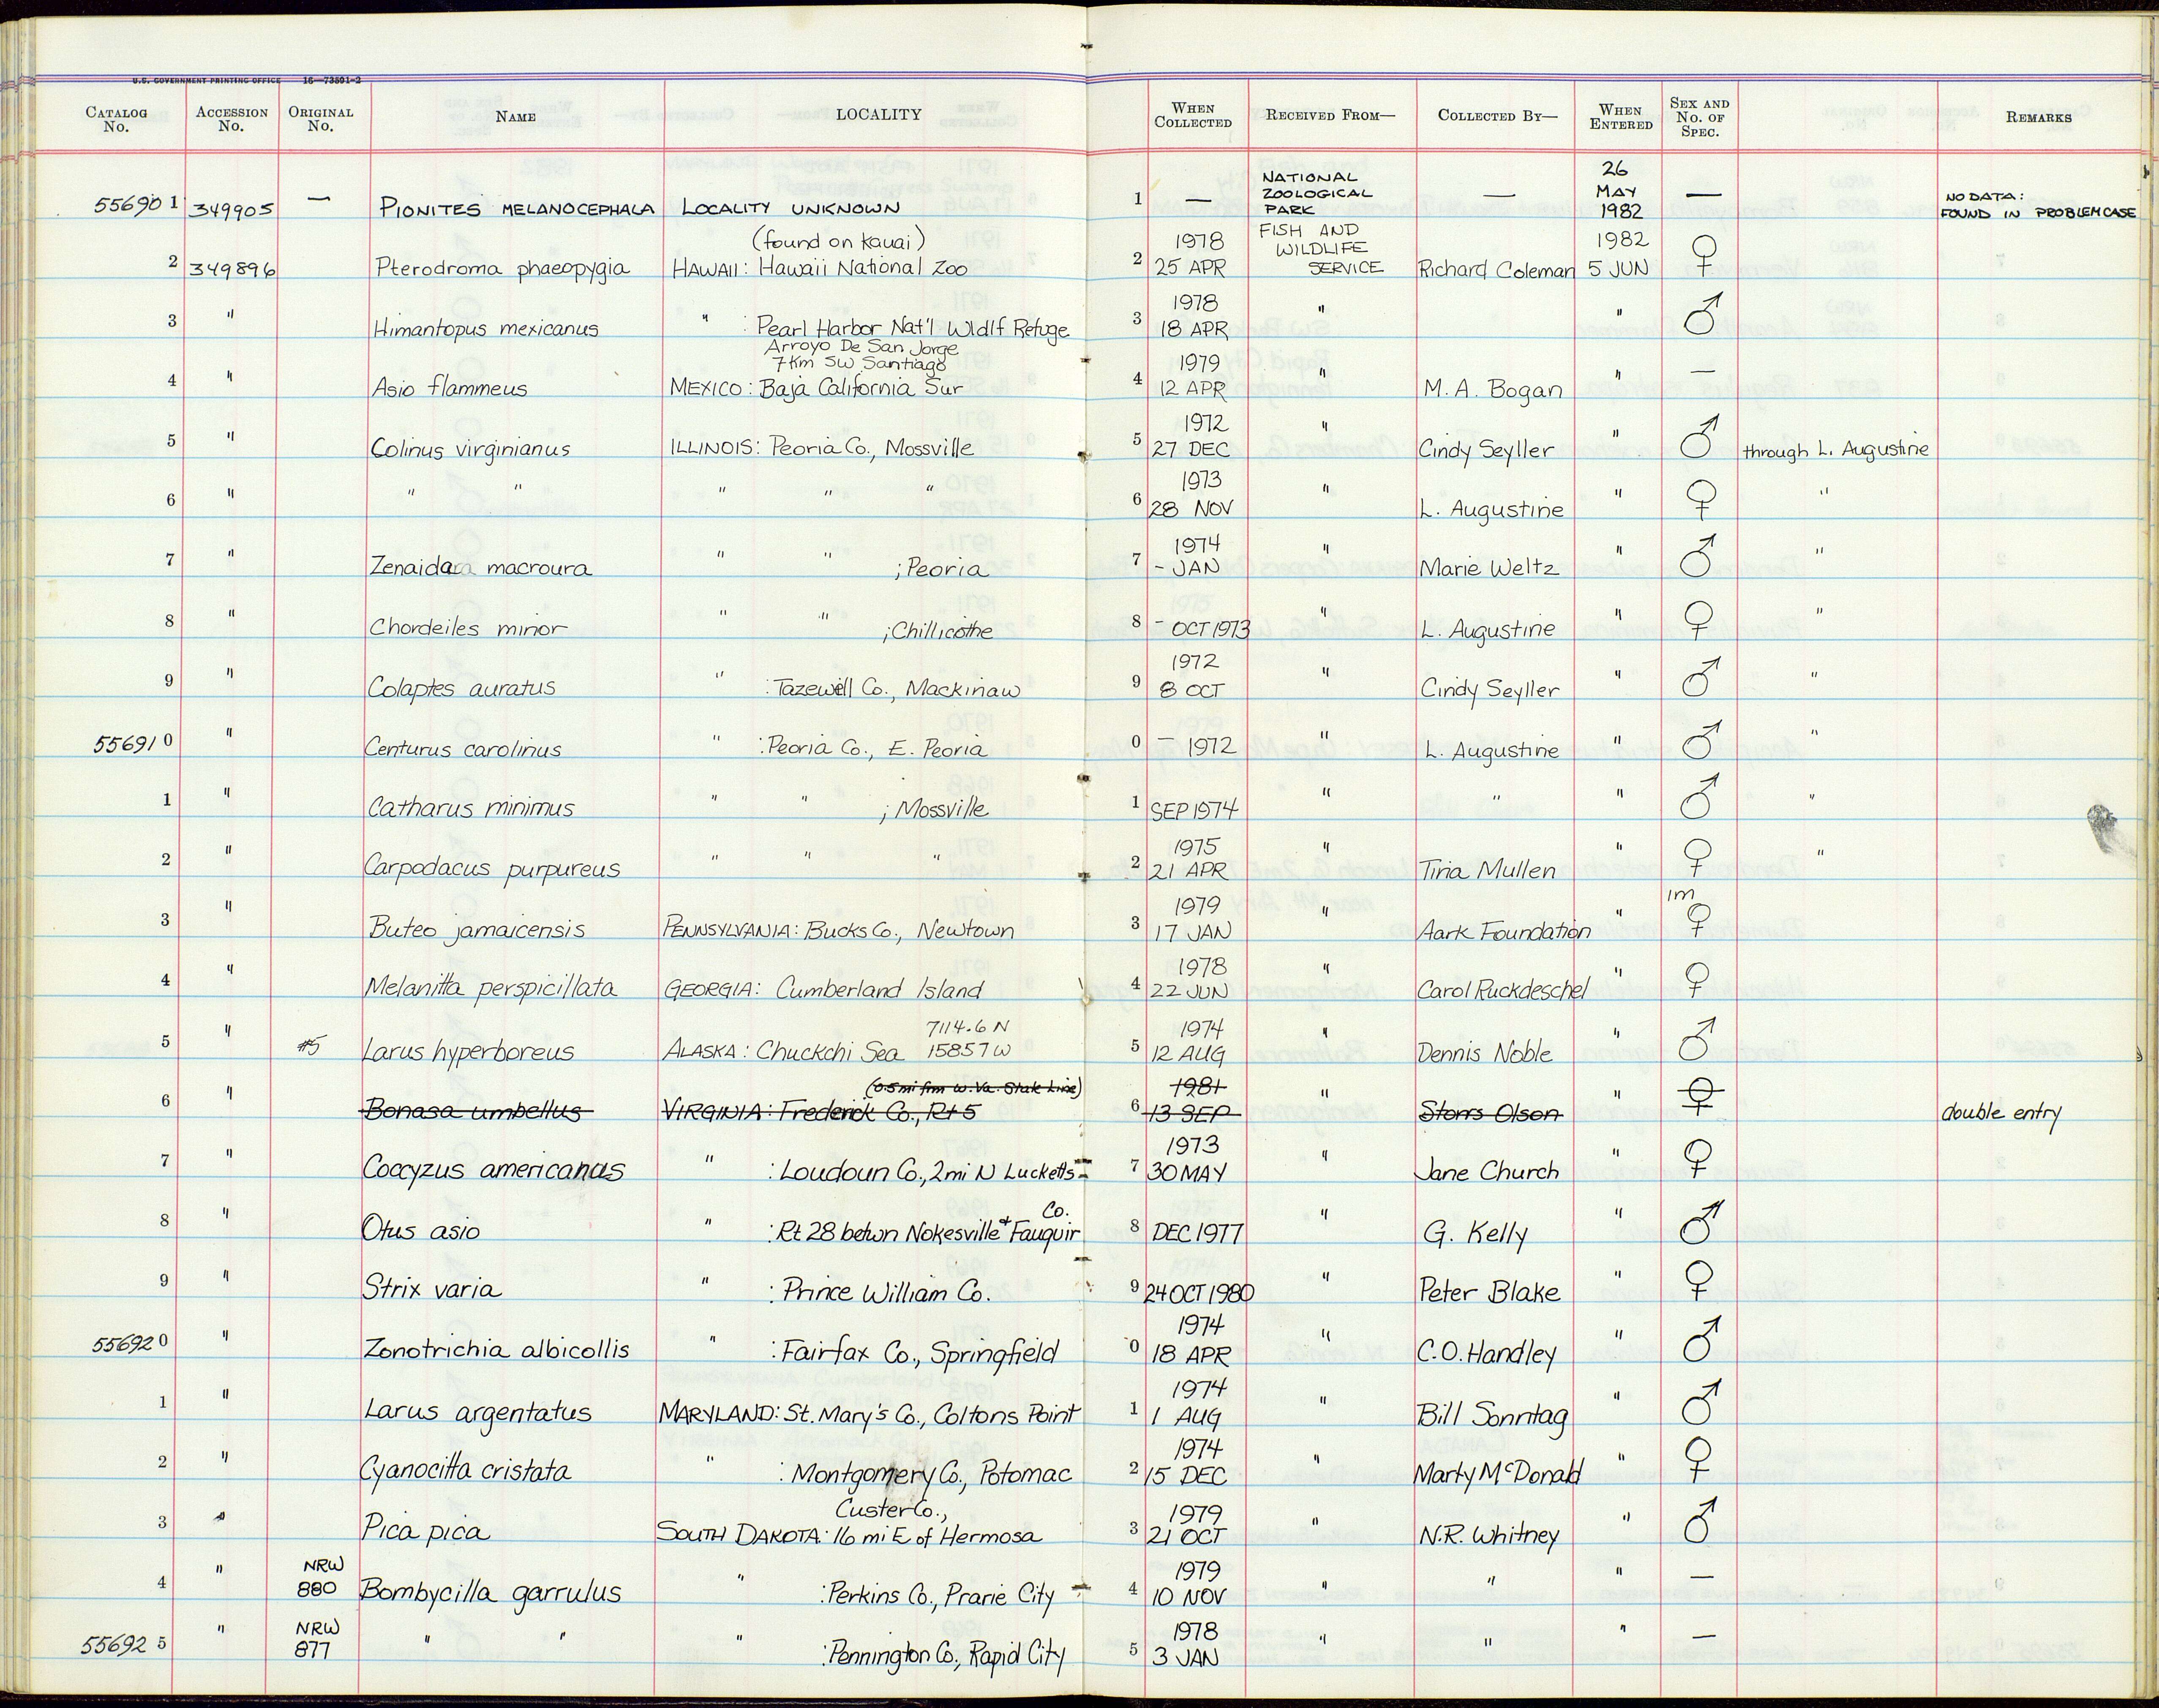 U.S. GOVERNMENT PRINTING OFFICE 16—73591-2
CATALOG No. ACCESSION No. ORIGINAL No. NAME LOCALITY WHEN COLLECTED RECEIVED FROM— COLLECTED BY— WHEN ENTERED SEX AND No. OF SPEC. REMARKS
55690 1 349905 — PIONITES MELANOCEPHALA LOCALITY UNKNOWN 1 — NATIONAL ZOOLOGICAL PARK — 26 MAY 1982 — NO DATA: FOUND IN PROBLEM CASE
2 349896 Pterodroma phaeopygia HAWAII: Hawaii National Zoo (found on Kauai) 2 1978 25 APR FISH AND WILDLIFE SERVICE Richard Coleman 1982 5 JUN ♀
3 " Himantopus mexicanus " : Pearl Harbor Nat'l Wldlf Refuge 3 1978 18 APR " " ♂
4 " Asio flammeus MEXICO: Baja California Sur Arroyo De San Jorge 7 Km SW Santiago 4 1979 12 APR " M.A. Bogan " —
5 " Colinus virginianus ILLINOIS: Peoria Co., Mossville 5 1972 27 DEC " Cindy Seyller " ♂ through L. Augustine
6 " " " " " " 6 1973 28 NOV " L. Augustine " ♀ "
7 " Zenaida macroura " " ; Peoria 7 1974 - JAN " Marie Weltz " ♂ "
8 " Chordeiles minor " " ; Chillicothe 8 - OCT 1973 " L. Augustine " ♀ "
9 " Colaptes auratus " : Tazewell Co., Mackinaw 9 1972 8 OCT " Cindy Seyller " ♂ "
55691 0 " Centurus carolinus " : Peoria Co., E. Peoria 0 — 1972 " L. Augustine " ♂ "
1 " Catharus minimus " " ; Mossville 1 SEP 1974 " " " ♂ "
2 " Carpodacus purpureus " " " 2 1975 21 APR " Tina Mullen " ♀ "
3 " Buteo jamaicensis PENNSYLVANIA: Bucks Co., Newtown 3 1979 17 JAN " Aark Foundation " Im ♀
4 " Melanitta perspicillata GEORGIA: Cumberland Island 4 1978 22 JUN " Carol Ruckdeschel " ♀
5 " #5 Larus hyperboreus ALASKA: Chuckchi Sea 7114.6 N 15857 W 5 1974 12 AUG " Dennis Noble " ♂
6 " Bonasa umbellus VIRGINIA: Frederick Co., Rt 5 (0.5 mi frm W. Va. State Line) 6 1981 13 SEP " Storrs Olson " ♀ double entry
7 " Coccyzus americanus " : Loudoun Co., 2mi N Lucketts 7 1973 30 MAY " Jane Church " ♀
8 " Otus asio " : Rt 28 betwn Nokesville + Fauquir Co. 8 DEC 1977 " G. Kelly " ♂
9 " Strix varia " : Prince William Co. 9 24 OCT 1980 " Peter Blake " ♀
55692 0 " Zonotrichia albicollis " : Fairfax Co., Springfield 0 1974 18 APR " C.O. Handley " ♂
1 " Larus argentatus MARYLAND: St. Mary's Co., Coltons Point 1 1974 1 AUG " Bill Sonntag " ♂
2 " Cyanocitta cristata " : Montgomery Co., Potomac 2 1974 15 DEC " Marty McDonald " ♀
3 " Pica pica SOUTH DAKOTA: Custer Co., 16 mi E of Hermosa 3 1979 21 OCT " N.R. Whitney " ♂
4 " NRW 880 Bombycilla garrulus " : Perkins Co., Prarie City 4 1979 10 NOV " " " —
55692 5 " NRW 877 " " " : Pennington Co., Rapid City 5 1978 3 JAN " " " —